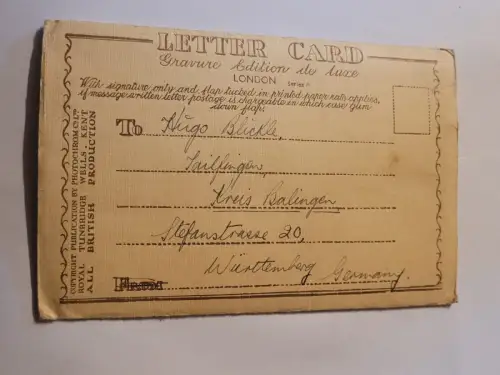 LETTER CARD
Gravure Edition de luxe
LONDON
Series
With signature only and flap tucked in printed paper rate applies,
if message written letter postage is chargeable in which case gum
down flap.
To Hugo Blickle,
Tailfingen,
Kreis Balingen,
Stefanstrasse 20,
Württemberg Germany.
From
COPYRIGHT PUBLICATION BY PHOTOCHROM CO LTD
ROYAL TUNBRIDGE WELLS, KENT
ALL BRITISH PRODUCTION